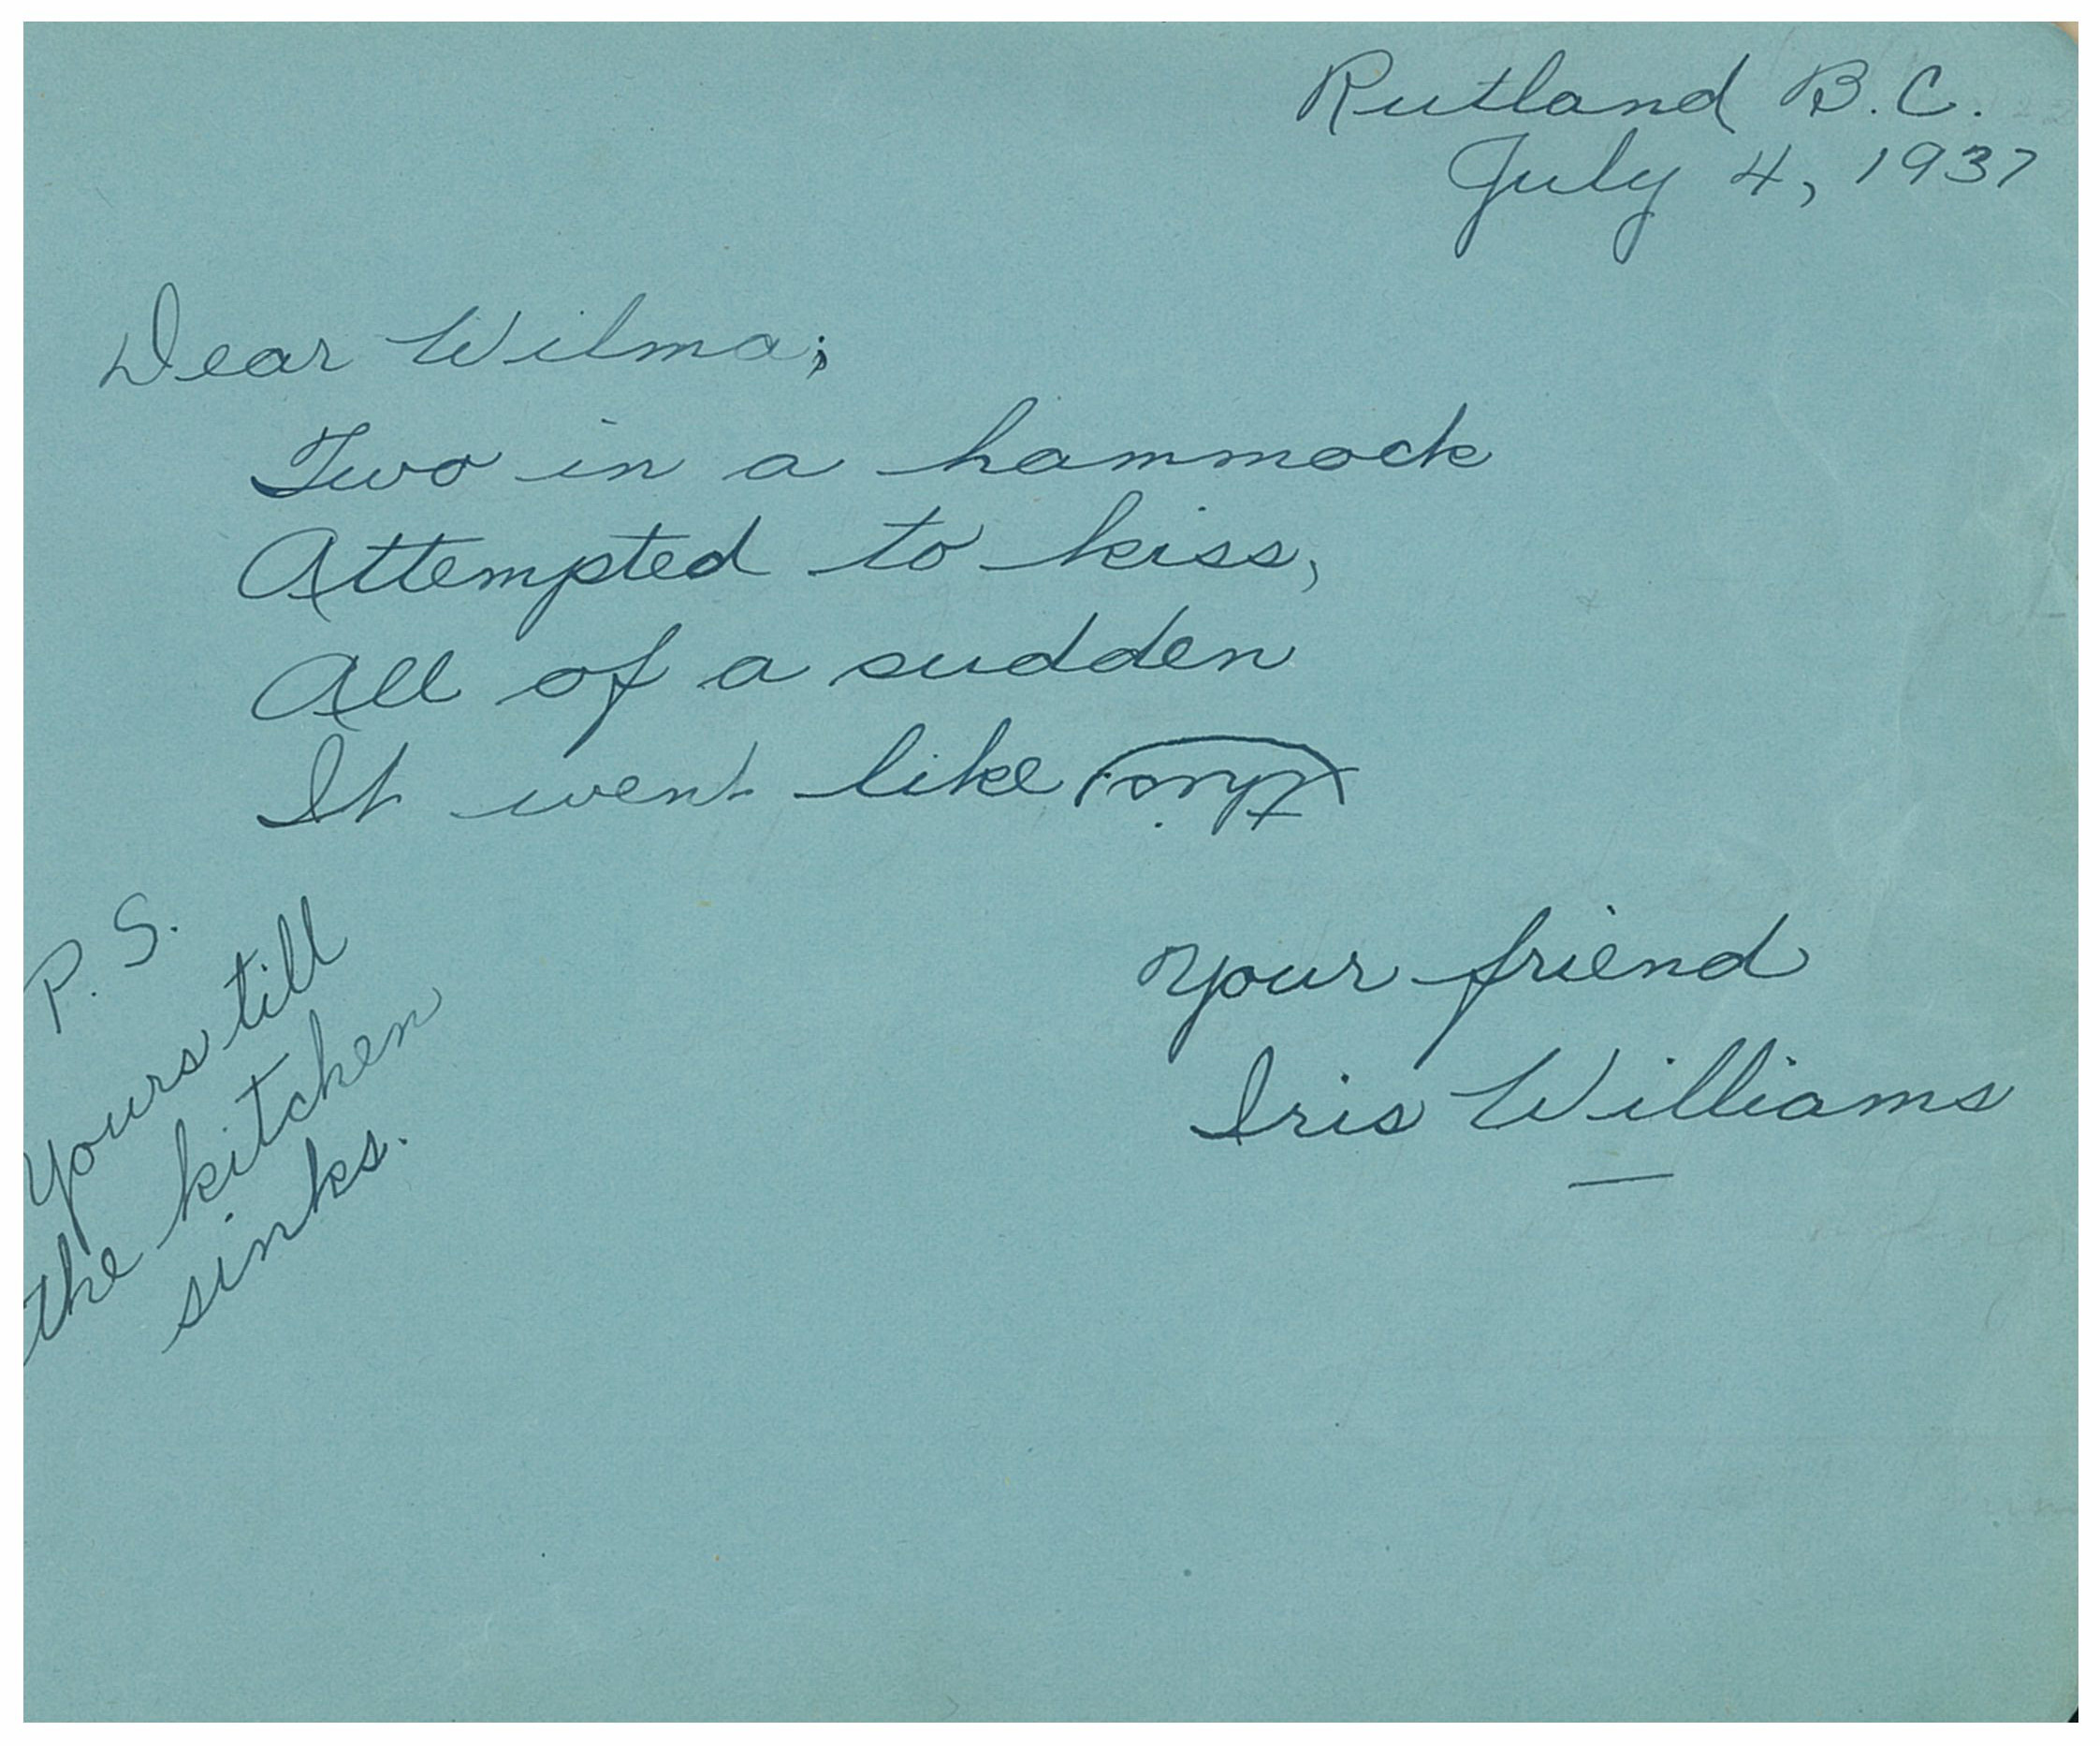 Rutland B.C.
July 4, 1937
Dear Wilma;
Two in a hammock
Attempted to kiss,
All of a sudden
It went like this.
Your friend
Iris Williams
P.S.
Yours till
the kitchen
sinks.